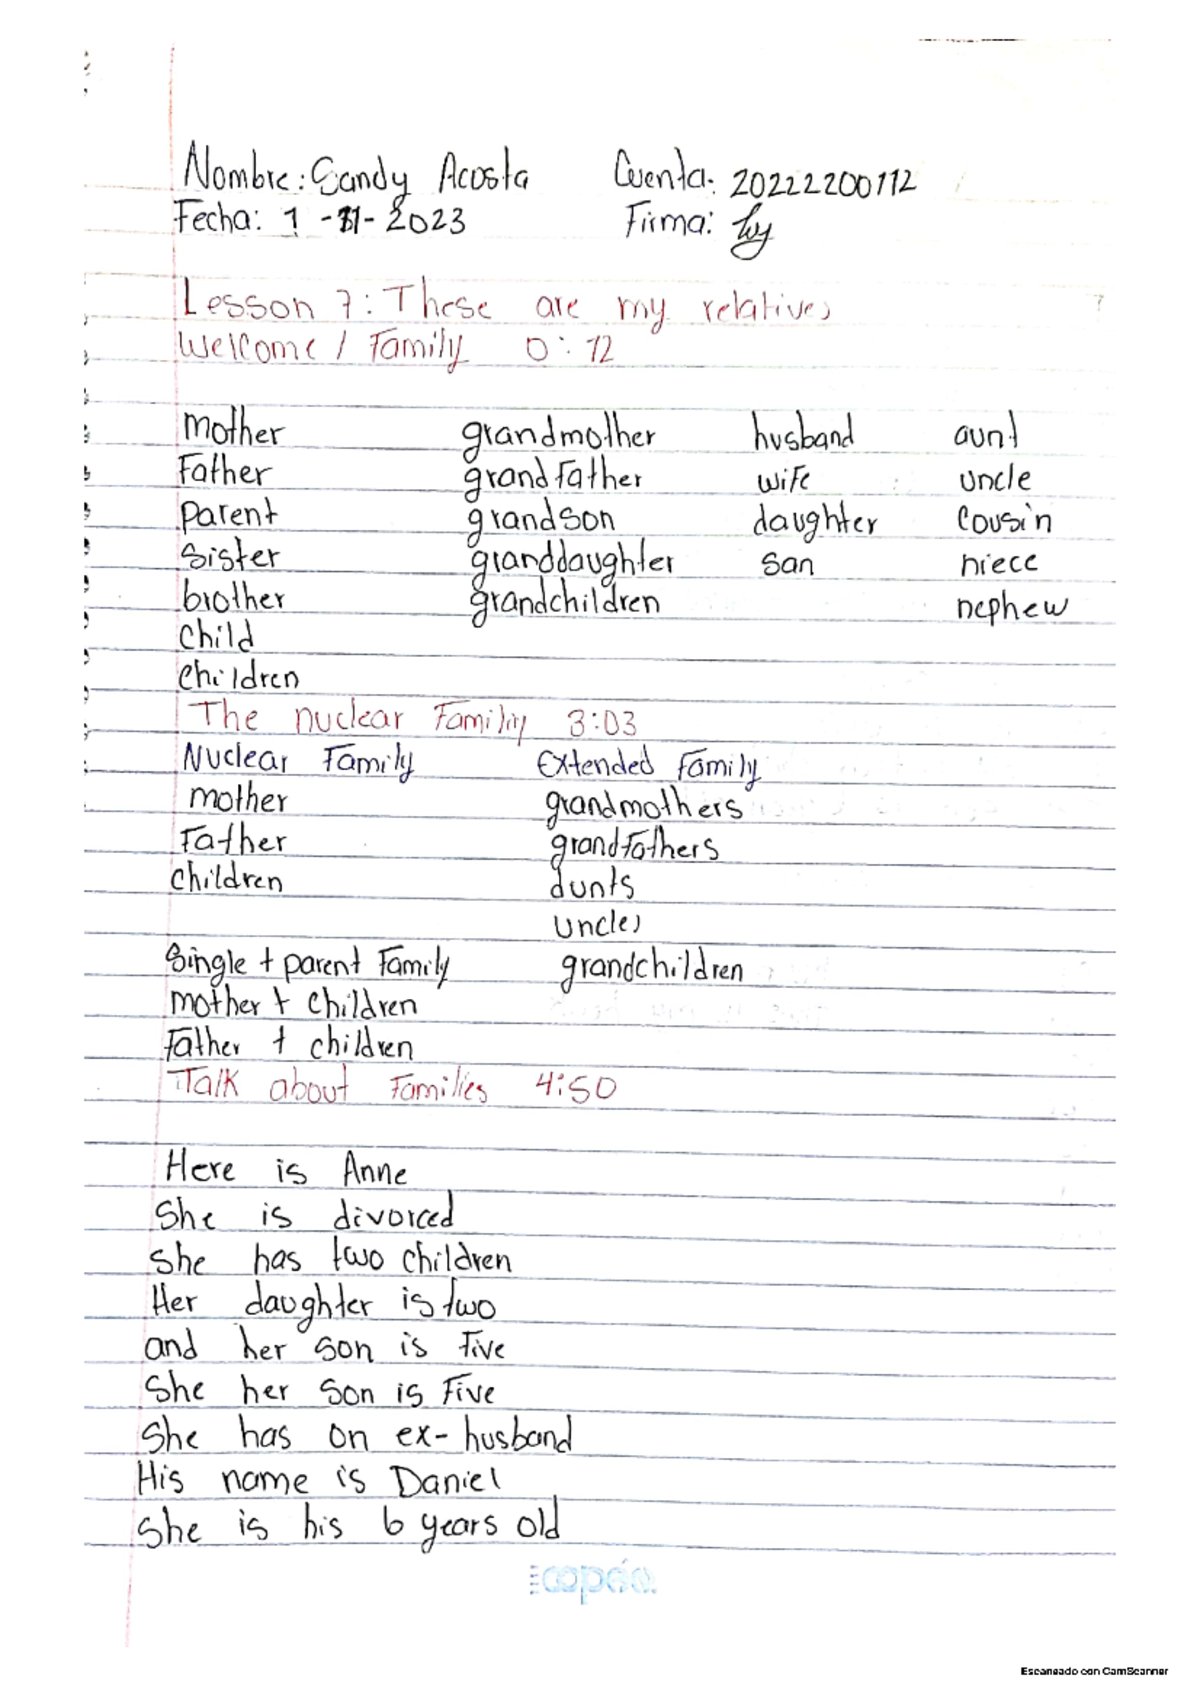 Nombre: Sandy Acosta Cuenta: 20222200112
Fecha: 1 -11- 2023 Firma:
Lesson 7: These are my relatives
Welcome / Family 0:12
mother grandmother husband aunt
Father grandfather wife uncle
parent grandson daughter Cousin
Sister granddaughter san niece
brother grandchildren nephew
Child
Children
The nuclear Family 3:03
Nuclear Family Extended Family
mother grandmothers
Father grandfathers
Children aunts
uncles
Single + parent Family grandchildren
mother + children
Father + children
Talk about Families 4:50
Here is Anne
She is divorced
She has two children
Her daughter is two
and her son is Five
She her son is Five
She has on ex-husband
His name is Daniel
She is his 6 years old
copán
Escaneado con CamScanner